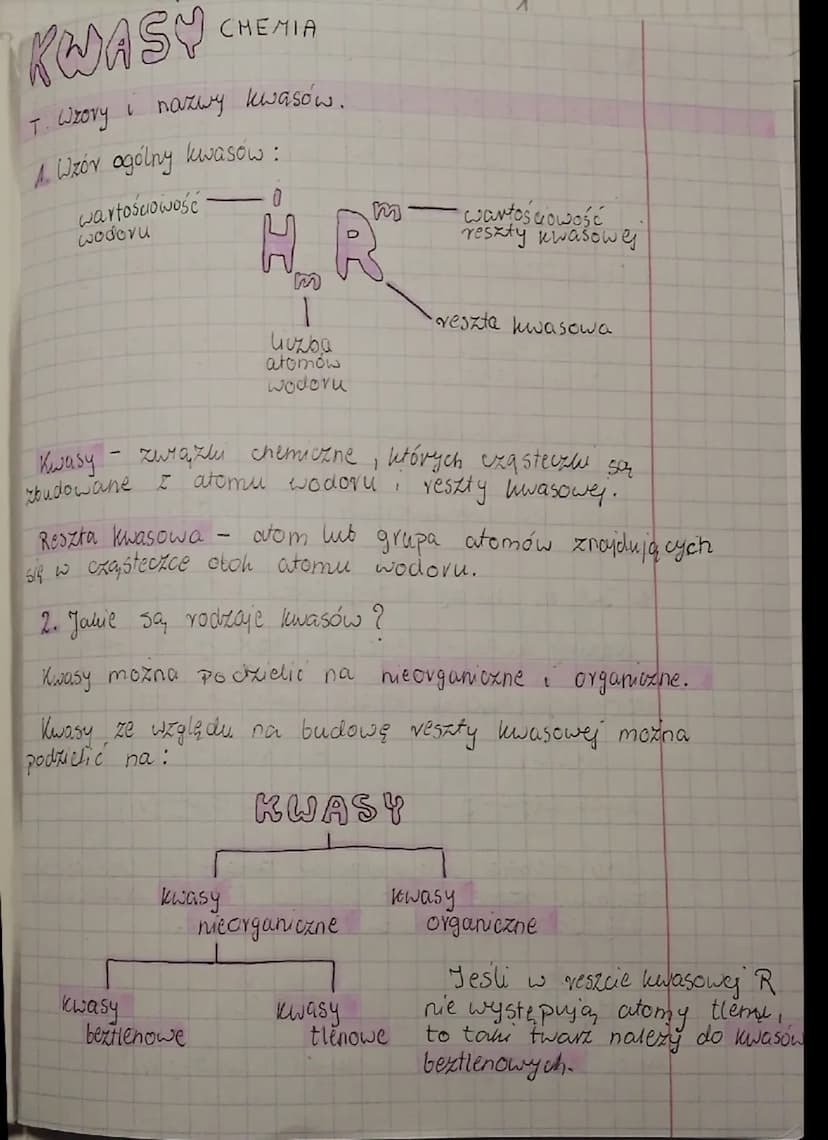 KWASY CHEMIA
T. Wzory i nazwy kwasów.
1. Wzór ogólny kwasów:
wartościowość
wodoru
I
H m R m
wartościowość
reszty kwasowej
reszta kwasowa
liczba
atomów
wodoru
Kwasy - związki chemiczne, których cząsteczki są
zbudowane z atomu wodoru i reszty kwasowej.
Reszta kwasowa - atom lub grupa atomów znajdujących
się w cząsteczce obok atomu wodoru.
2. Jakie są rodzaje kwasów?
Kwasy można podzielić na nieorganiczne i organiczne.
Kwasy ze względu na budowę reszty kwasowej można
podzielić na:
KWASY
kwasy
nieorganiczne
kwasy
organiczne
kwasy
beztlenowe
kwasy
tlenowe
Jeśli w reszcie kwasowej R
nie występują atomy tlenu,
to taki twarz należy do kwasów
beztlenowych.